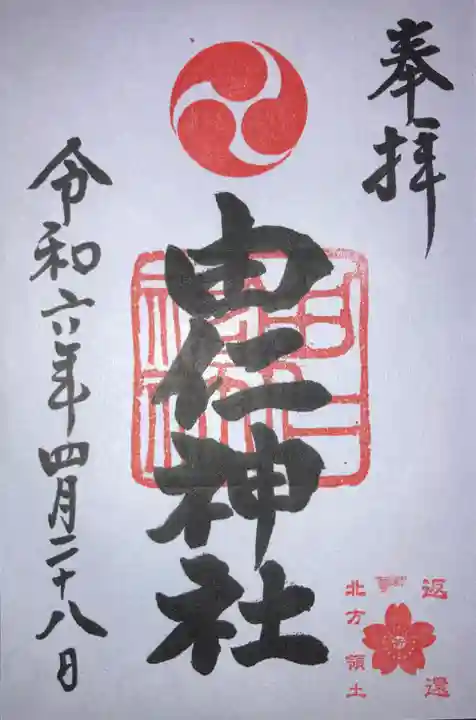 奉拝
由仁神社
由仁神社
令和六年四月二十八日
返還
北方領土